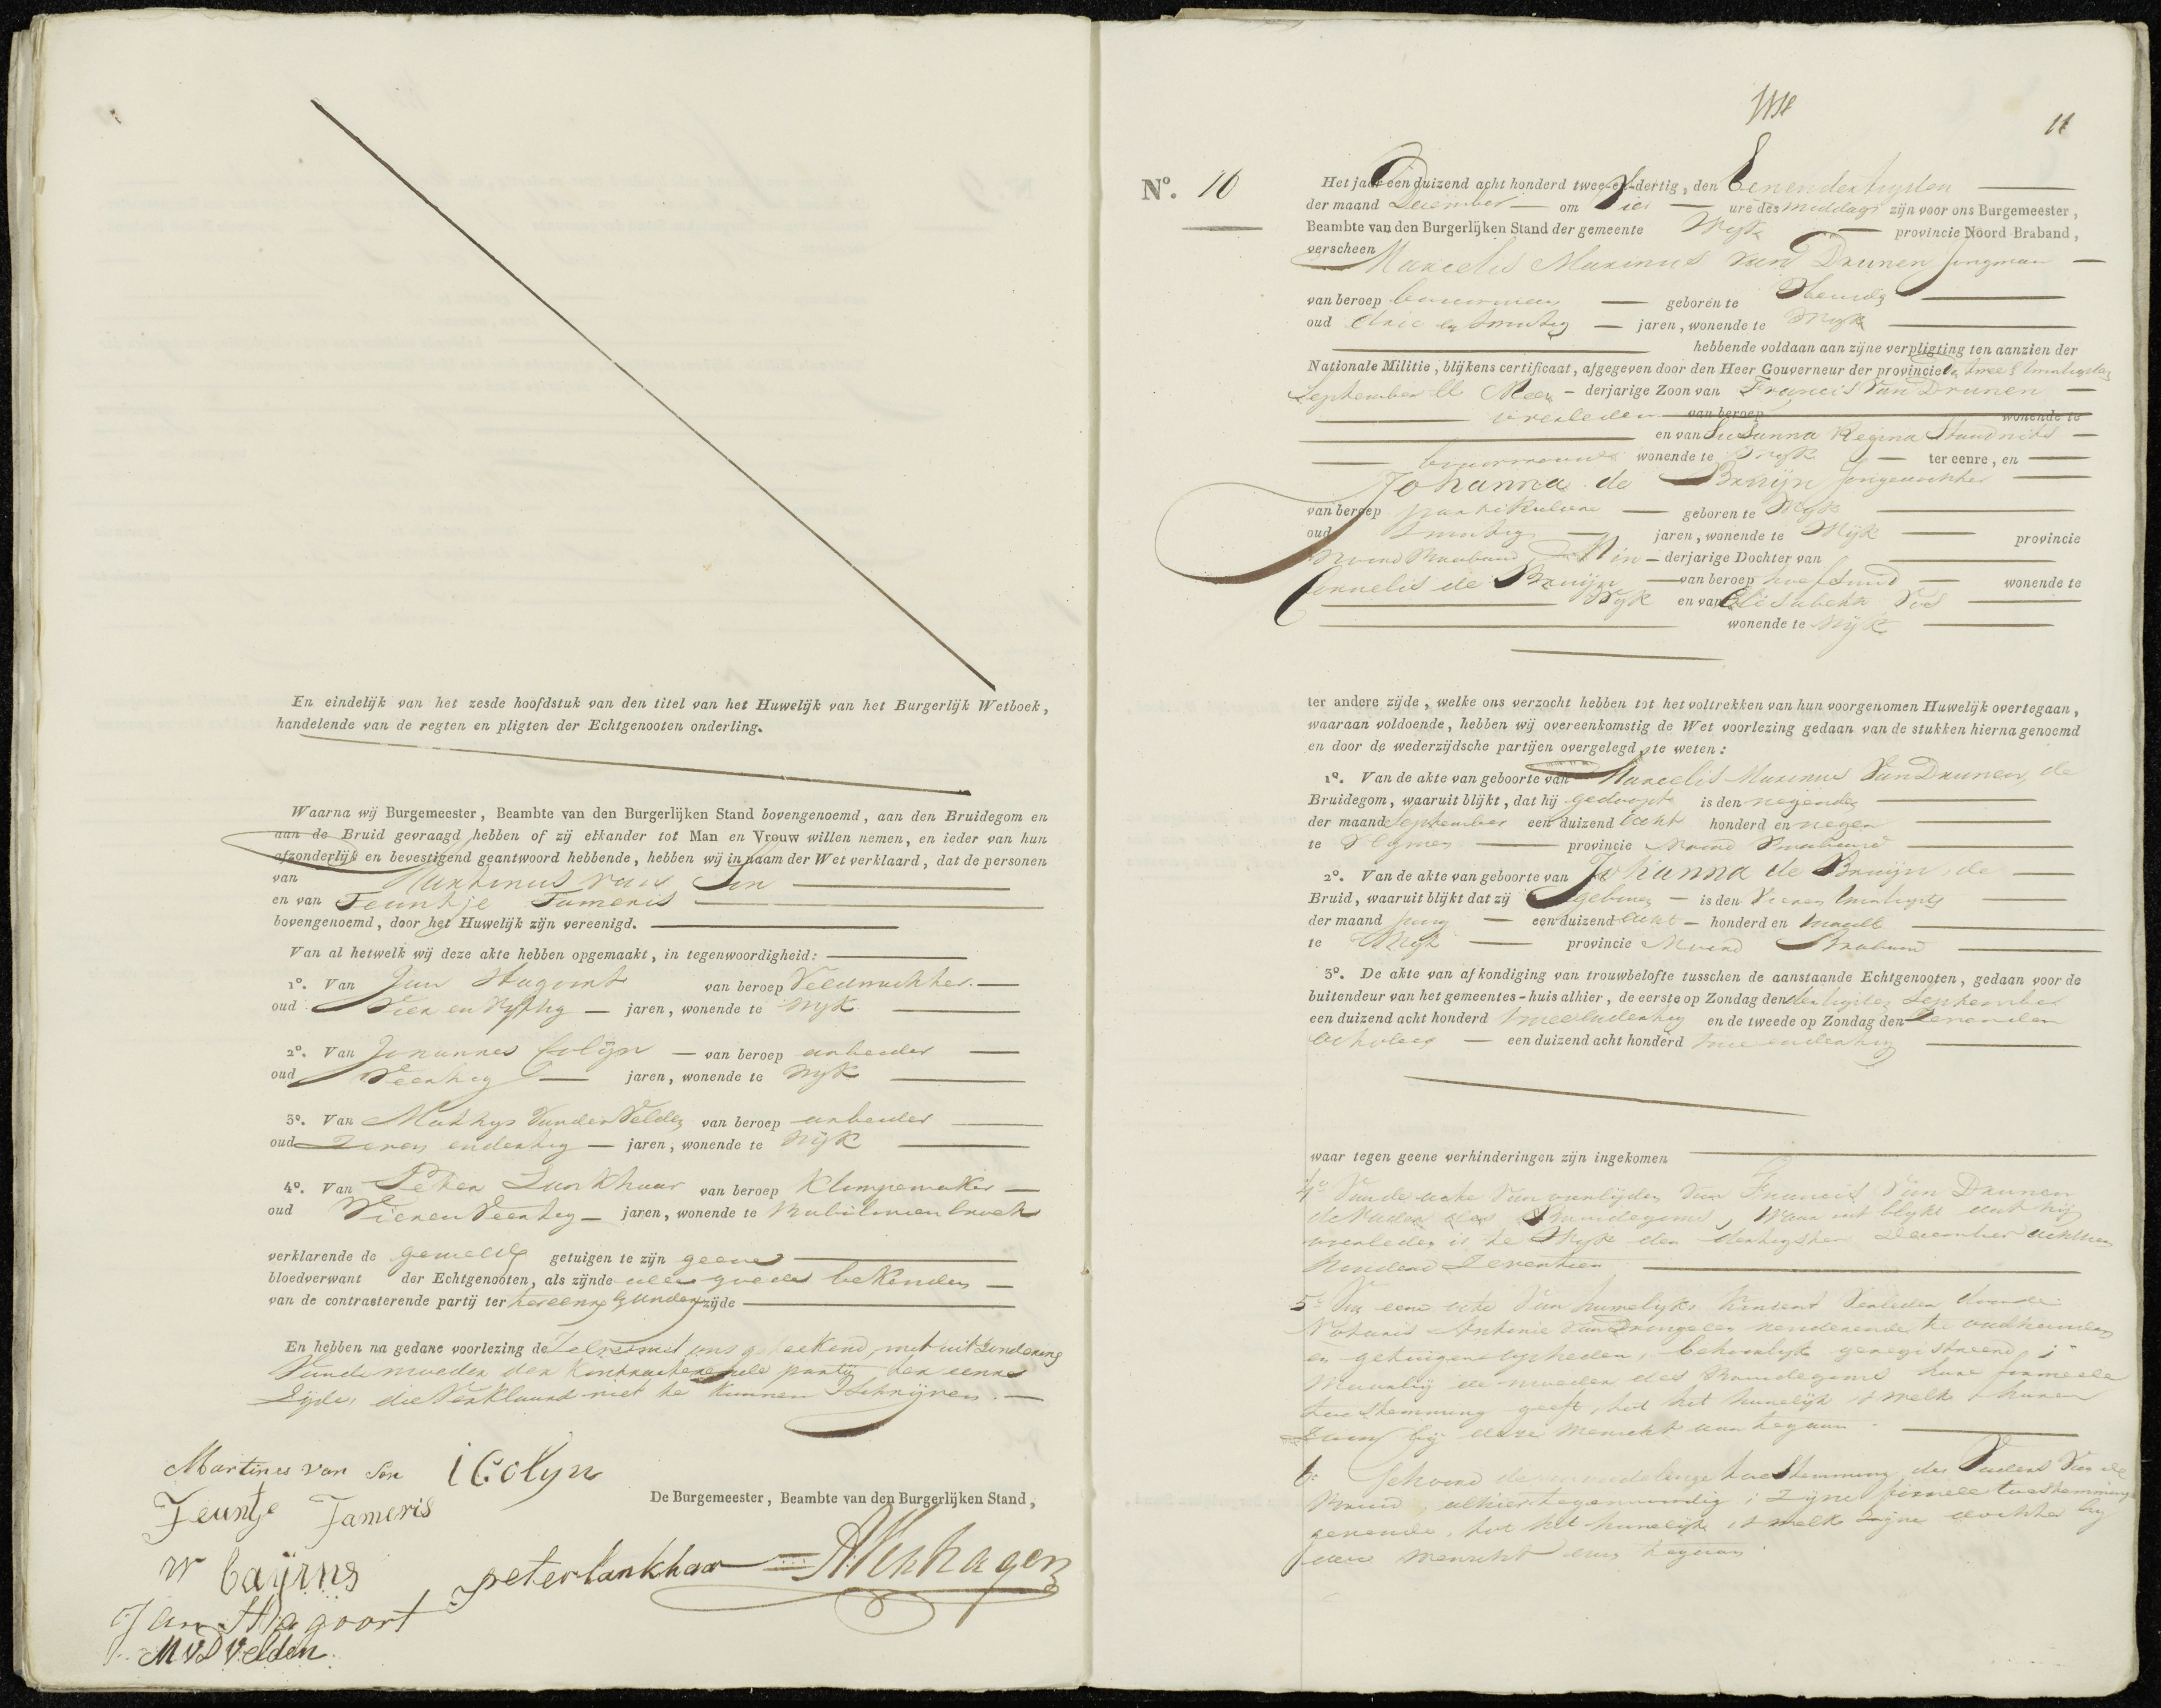 En eindelijk van het zesde hoofdstuk van den titel van het Huwelijk van het Burgerlijk Wetboek,
handelende van de regten en pligten der Echtgenooten onderling.
Waarna wij Burgemeester, Beambte van den Burgerlijken Stand bovengenoemd, aan den Bruidegom en
aan de Bruid gevraagd hebben of zij elkander tot Man en Vrouw willen nemen, en ieder van hun
afzonderlijk en bevestigend geantwoord hebbende, hebben wij in naam der Wet verklaard, dat de personen
van Martinus van Son
en van Teuntje Tameris
bovengenoemd, door het Huwelijk zijn vereenigd.
Van al hetwelk wij deze akte hebben opgemaakt, in tegenwoordigheid:
1º. Van Jan Hagoort van beroep Veldwachter
oud Vier en Vyftig jaren, wonende te Wyk
2º. Van Johannes Colijn van beroep arbeider
oud Veertig jaren, wonende te Wyk
3º. Van Mathys Van der Velden van beroep arbeider
oud Zeven endertig jaren, wonende te Wijk
4º. Van Peter Lankhaar van beroep Klompemaker
oud Vier en Veertig jaren, wonende te
verklarende de gemelde getuigen te zijn geene
bloedverwant der Echtgenooten, als zijnde alle goede bekenden
van de contracterende partij ter zijde
En hebben na gedane voorlezing de Zelve met ons geteekend, met uitzondering
Van de moeder der Kontracterende partij ter eenre
Zyde, die Verklaard niet te kunnen Schrijven.
Martines van Son i Colyn
Teuntje Tameris
De Burgemeester, Beambte van den Burgerlijken Stand,
peter lankhaar
Jan Hagoort
M V D Velden
11
Nº. 10
Het jaar een duizend acht honderd twee-en-dertig, den Eenendertigsten
der maand December om Vier ure des middags zijn voor ons Burgemeester,
Beambte van den Burgerlijken Stand der gemeente Wyk provincie Noord-Braband,
verscheen Marcelis Marinus van Drunen Jongman
van beroep bouwman geboren te
oud drie en twintig jaren, wonende te Wyk
hebbende voldaan aan zijne verpligting ten aanzien der
Nationale Militie, blijkens certificaat, afgegeven door den Heer Gouverneur der provincie
September ll Meer-derjarige Zoon van Francis Van Drunen
overleden van beroep wonende te
en van Susanna Regina
wonende te Wyk ter eenre, en
Johanna de Bruijn
van beroep partikuliere geboren te Wyk
oud twintig jaren, wonende te Wijk provincie
Noord Braband Min-derjarige Dochter van
Cornelis de Bruijn van beroep hoefsmid wonende te
Wyk en van Elisabeth Vos
wonende te Wijk
ter andere zijde, welke ons verzocht hebben tot het voltrekken van hun voorgenomen Huwelijk overtegaan,
waaraan voldoende, hebben wij overeenkomstig de Wet voorlezing gedaan van de stukken hierna genoemd
en door de wederzijdsche partijen overgelegd, te weten:
1º. Van de akte van geboorte van Marcelis Marinus Van Drunen, de
Bruidegom, waaruit blijkt, dat hij gedoopt is den negenden
der maand September een duizend Acht honderd en negen
te Vlymen provincie Noord Braband
2º. Van de akte van geboorte van Johanna de Bruijn, de
Bruid, waaruit blijkt dat zij geboren is den Vier en twintigsten
der maand een duizend Acht honderd en twaalf
te Wyk provincie Noord Braband
3º. De akte van afkondiging van trouwbelofte tusschen de aanstaande Echtgenooten, gedaan voor de
buitendeur van het gemeentes-huis alhier, de eerste op Zondag den dertigsten September
een duizend acht honderd twee en dertig en de tweede op Zondag den Zevenden
October een duizend acht honderd twee en dertig
waar tegen geene verhinderingen zijn ingekomen
4º Van de acte Van overlijden Van Francis Van Drunen
de Vader des Bruidegoms, Waar uit blykt dat hij
overleden is te Wyk den dertigsten December achttien
honderd Zeventien
5º Van eene acte Van huwelyks Konsent Verleden Voor de
Notaris Antonie Van residerende te
en getuigen, behoorlyk geregistreerd,
Waarby de moeder des Bruidegoms hare formeele
toestemming geeft, tot het huwelijk t welk haren
Zoon by deze Wenscht aan tegaan.
6º Gehoord de mondelinge toestemming des Vaders Van de
Bruid, alhier tegenwoordig, Zyne formeele toestemming
gevende, tot het huwelijk, t welk Zyne dochter by
deze Wenscht aan tegaan